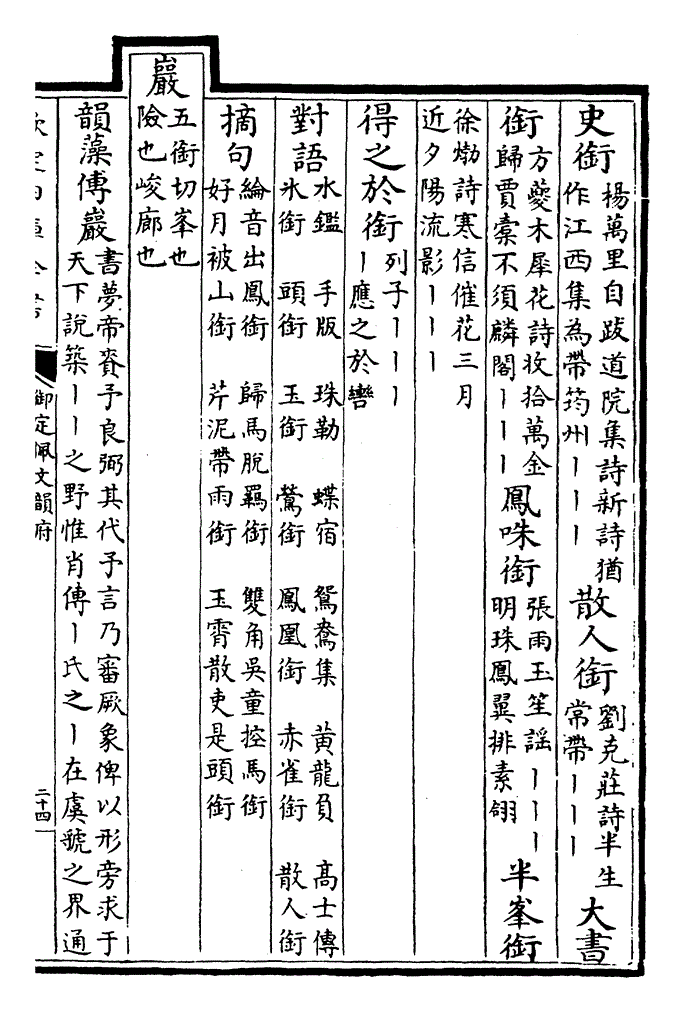 史銜
楊萬里自跋道院集詩新詩猶
作江西集為帶筠州丨丨丨
散人銜
劉克莊詩半生
常帶丨丨丨
大書
銜
方夔木犀花詩收拾萬金
歸賈橐不須麟閣丨丨丨
鳳咮銜
張雨玉笙謡丨丨丨
明珠鳳翼排素翎
半峯銜
徐𤊹詩寒信催花三月
近夕陽流影丨丨丨
得之於銜
列子丨丨丨
丨應之於轡
對語
水鑑 手版 珠勒 蝶宿 鴛鴦集 黄龍負 高士傳
氷銜 頭銜 玉銜 鶯銜 鳳凰銜 赤雀銜 散人銜
摘句
綸音出鳳銜 歸馬脫羈銜 雙角吳童控馬銜
好月被山銜 芹泥帶雨銜 玉霄散吏是頭銜
巖
五銜切峯也
險也峻廊也
韻藻傅巖
書夢帝賚予良弼其代予言乃審厥象俾以形旁求于
天下說築丨丨之野惟肖傅丨氏之丨在虞虢之界通
欽定四庫全書
御定佩文韻府
二十四